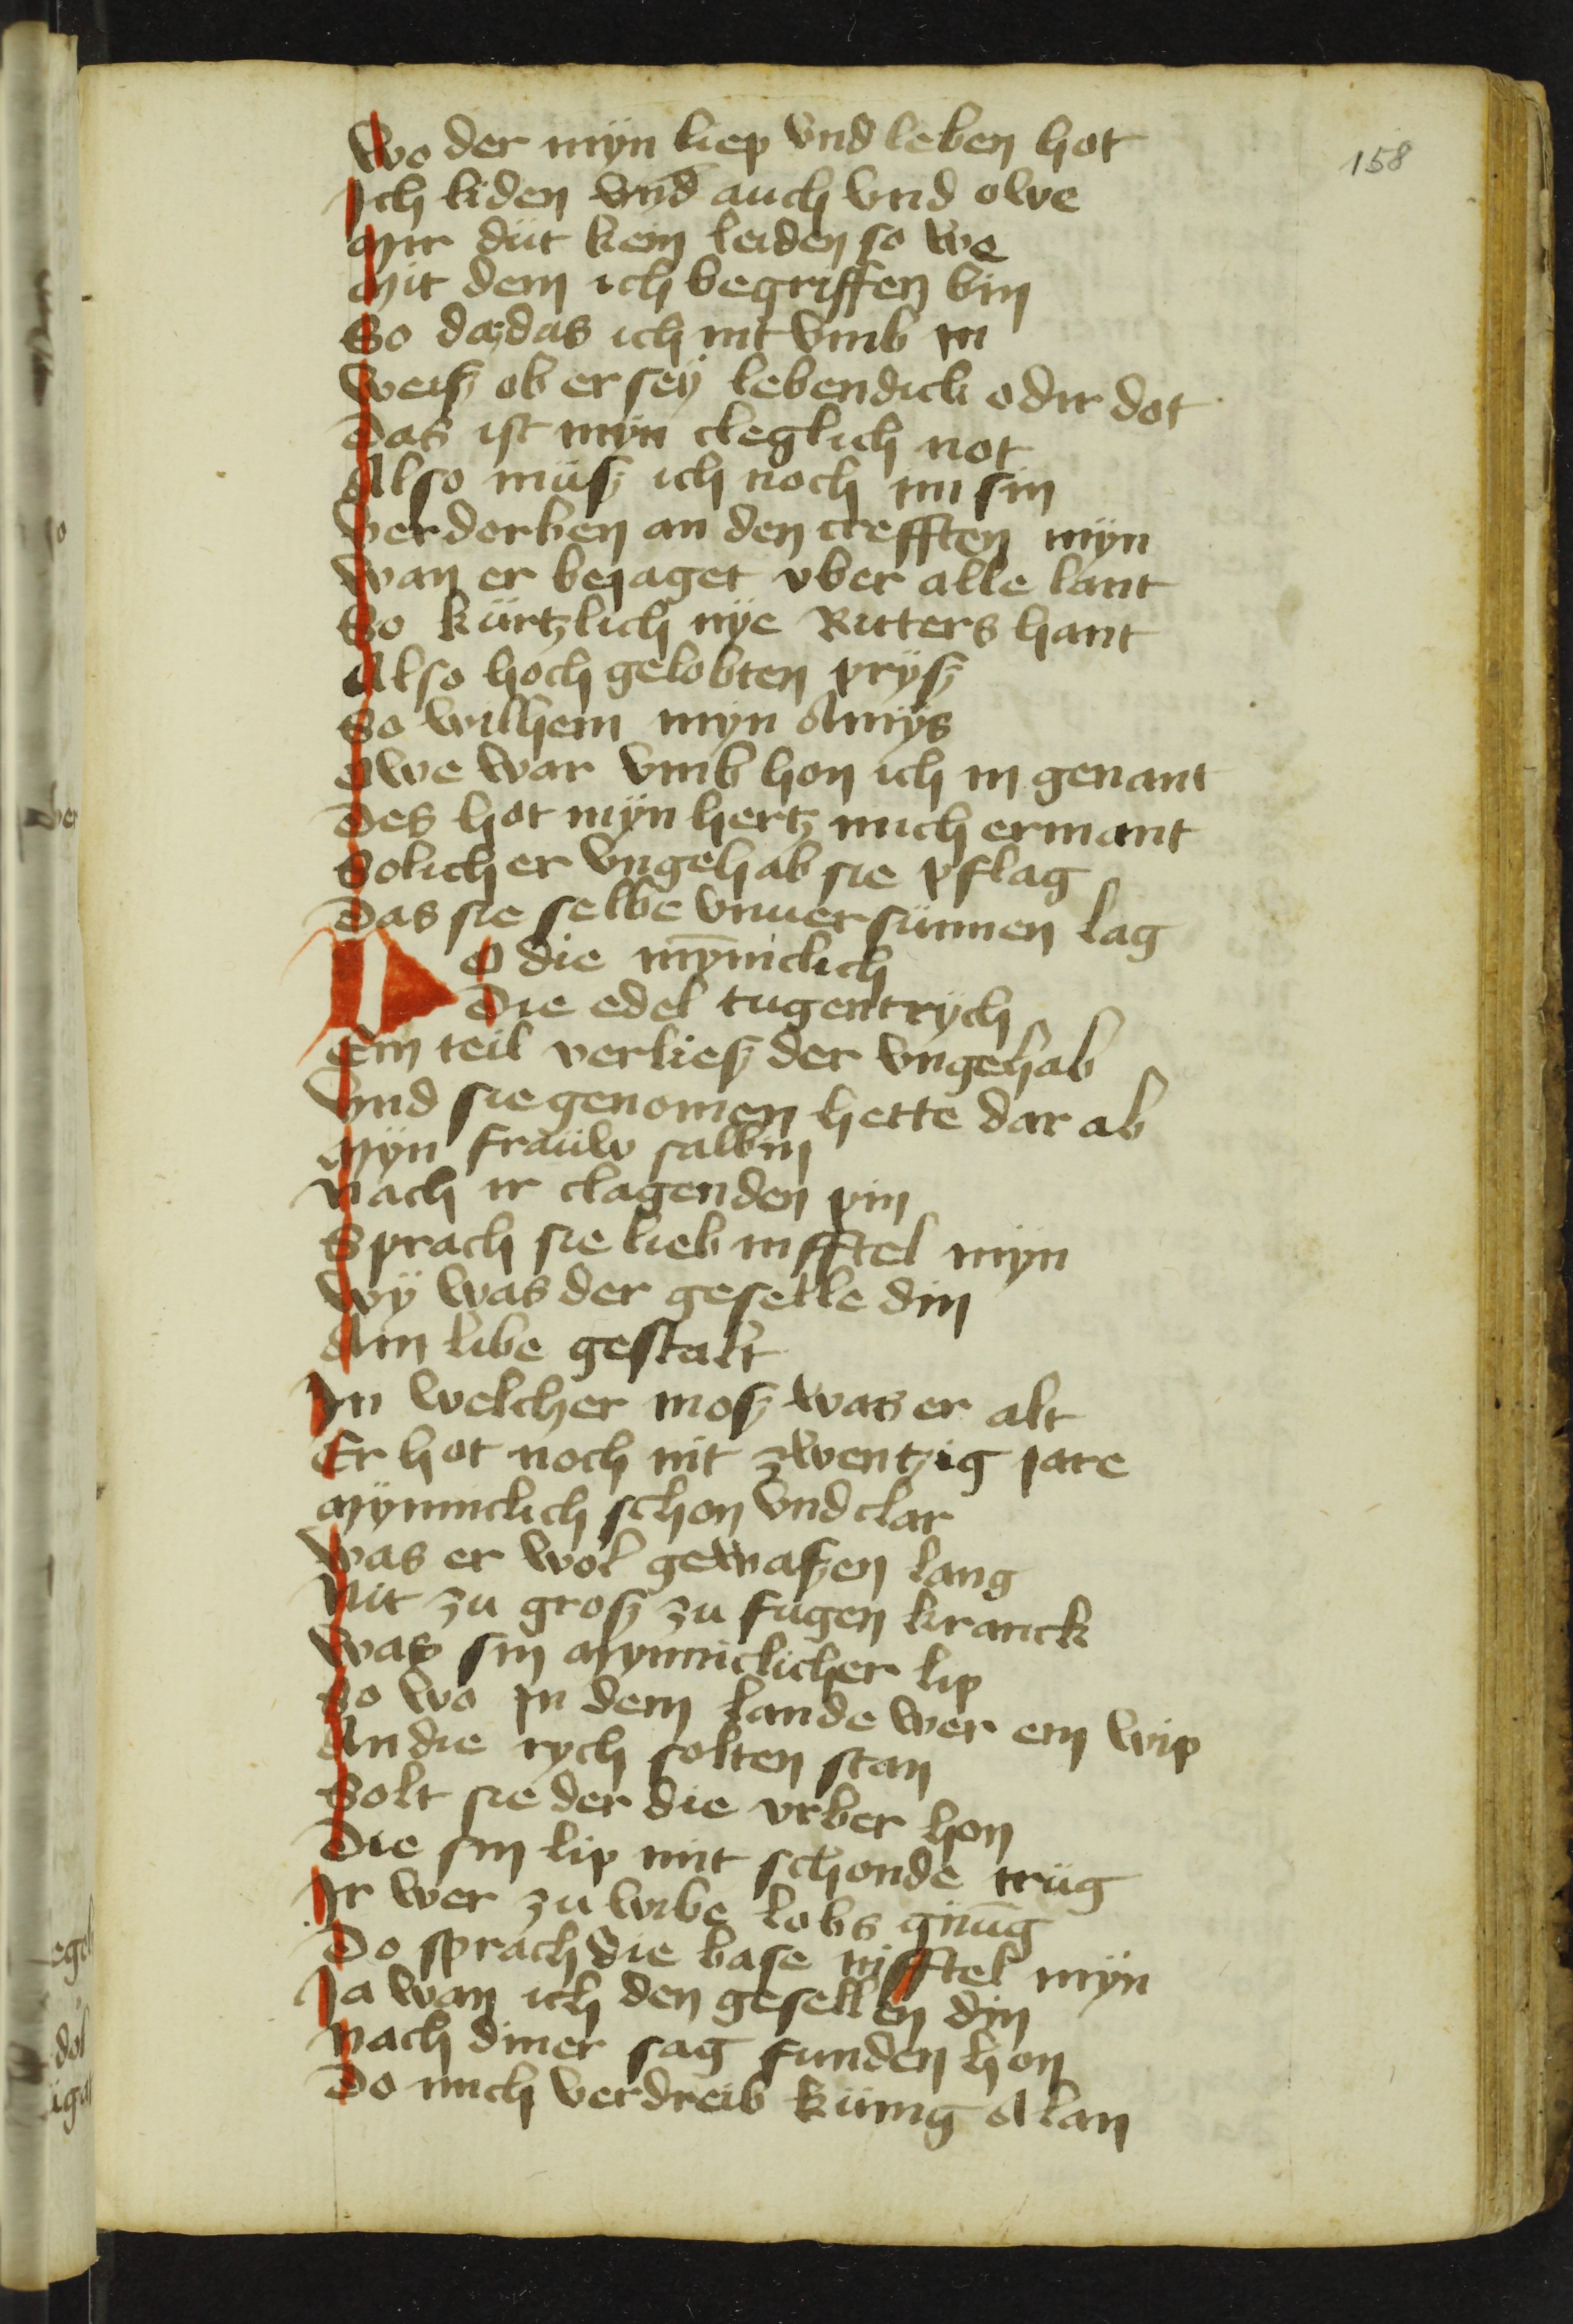 158
Wo der myn liep vnd leben hot
Ich liden vnd auch vnd owe
Mir düt kein leiden so we
Mit dem ich begriffen bin
So daz das ich nit vmb in
Weiß ob er sey lebendick odir dot
Das ist myn cleglich not
Also müß ich noch im sin
Verdorben an den crefften myn
Wan er bejaget vber alle lant
So kürtzlich nye Ritters hant
Also hoch gelobten prÿß
So wilhem myn Amÿs
Owe war vmb hon ich in genant
Des hot myn hertz mich ermant
Solicher vngehab sie pflag
Das sie selbe vnuersünnen lag
Do die mynniclich
Die edel tugentrÿch
Ein teil verließ der vngehab
Vnd sie genomen hette dar ab
Myn frauw salbin
Nach ir clagenden pin
Sprach sie lieb nifftel myn
Wÿ was der geselle din
Am libe gestalt
In welcher moß was er alt
Er hot noch nit zwentzig jare
Mynniclich schon vnd clar
Was er wol gewaßen lang
Nit zu groß zu fugen kranck
Was sin mynniclicher lip
So wo in dem lande wer ein wip
An die rych solten stan
Solt sie der die vrber hon
Die sin lip mit schonde trüg
Ir wer zu wibe lobs gnüg
Do sprach die base nifftel myn
Ja wan ich den gesellen din
Nach diner sag funden hon
Do mich verdreib künig Alan